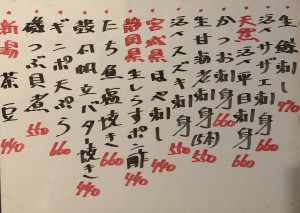 生鯵刺し 770
活サザエ刺
天然 活平目刺身 660
かつお刺身 660
生甘海老刺身(5本) 550
活スズキ刺身 550
宮城県 ほや刺し 440
静岡県 生しらすポン酢 440
たち魚塩焼き 660
殻付帆立バター焼き 440
ギンポ天ぷら 660
磯つぶ貝煮 550
新潟 茶豆 440